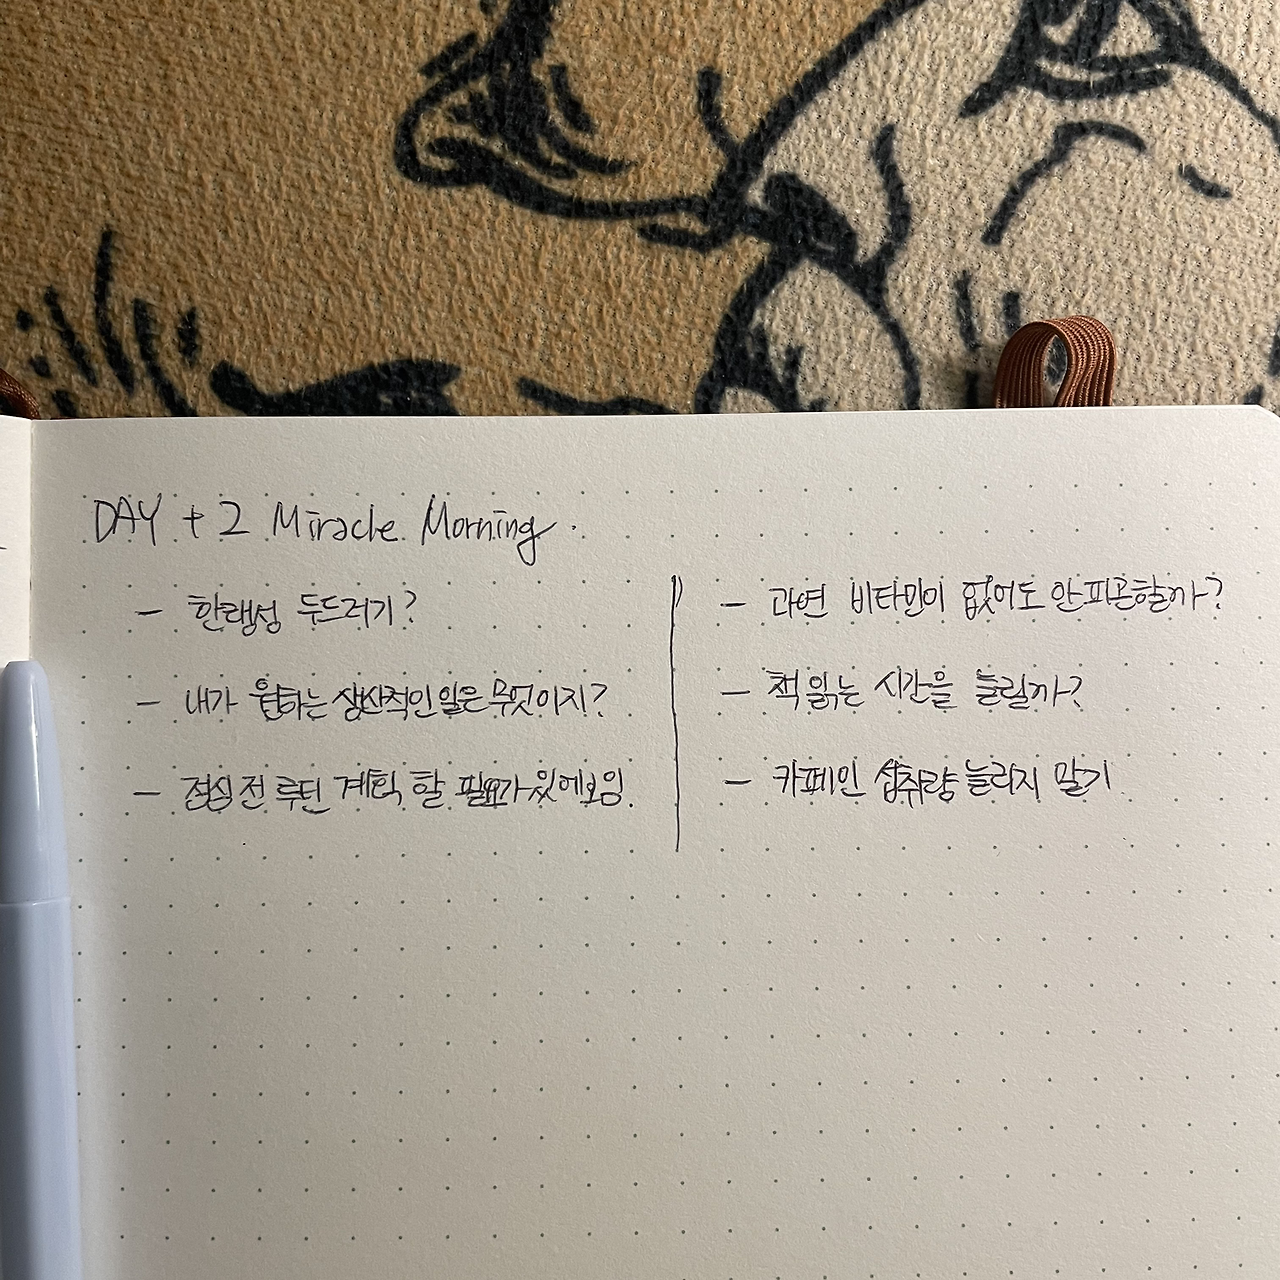 DAY + 2 Miracle Morning.
- 한랭성 두드러기?
- 내가 원하는 생산적인 일은 무엇이지?
- 점심 전 루틴 계획 할 필요가 있에보임
- 과연 비타민이 없어도 안피곤할까?
- 책 읽는 시간을 늘릴까?
- 카페인 섭취량 늘리지 말기